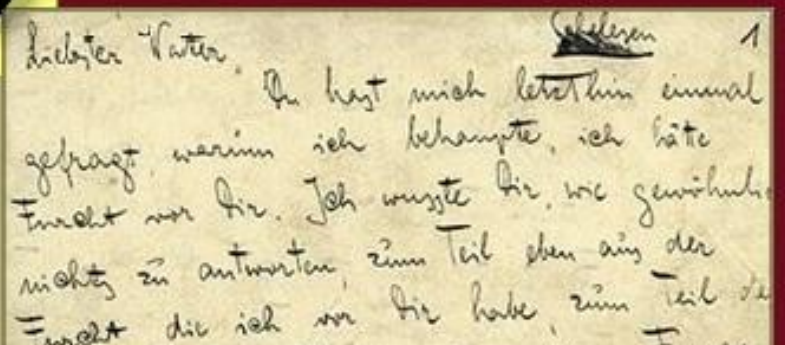 Schelesen 1
Liebster Vater,
Du hast mich letzthin einmal
gefragt, warum ich behaupte, ich hätte
Furcht vor Dir. Ich wusste Dir, wie gewöhnlic
nichts zu antworten, zum Teil eben aus der
Furcht die ich vor Dir habe, zum Teil de